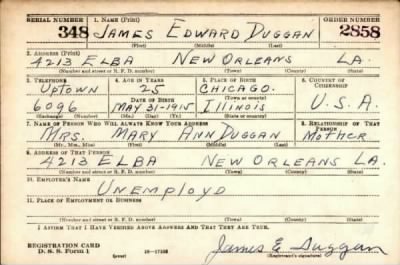 SERIAL NUMBER 1. NAME (Print) ORDER NUMBER
348 JAMES EDWARD DUGGAN 2858
(First) (Middle) (Last)
2. ADDRESS (Print)
4213 ELBA NEW ORLEANS LA.
(Number and street or R. F. D. number) (Town) (County) (State)
3. TELEPHONE 4. AGE IN YEARS 5. PLACE OF BIRTH 6. COUNTRY OF CITIZENSHIP
UPTOWN 25 CHICAGO.
DATE OF BIRTH (Town or county)
6096 MAY-31-1915 ILLINOIS U.S.A.
(Exchange) (Number) (Mo.) (Day) (Yr.) (State or country)
7. NAME OF PERSON WHO WILL ALWAYS KNOW YOUR ADDRESS 8. RELATIONSHIP OF THAT PERSON
MRS. MARY ANN DUGGAN MOTHER
(Mr., Mrs., Miss) (First) (Middle) (Last)
9. ADDRESS OF THAT PERSON
4213 ELBA NEW ORLEANS LA.
(Number and street or R. F. D. number) (Town) (County) (State)
10. EMPLOYER'S NAME
UNEMPLOYD
11. PLACE OF EMPLOYMENT OR BUSINESS
(Number and street or R. F. D. number) (Town) (County) (State)
I AFFIRM THAT I HAVE VERIFIED ABOVE ANSWERS AND THAT THEY ARE TRUE.
REGISTRATION CARD
D. S. S. Form 1 (over) 16—17105 James E. Duggan
(Registrant's signature)